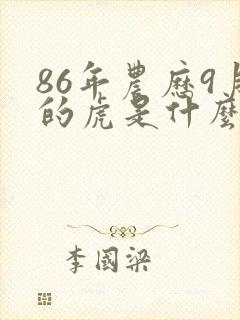 86年農歷9月
的虎是什麼
李國梁